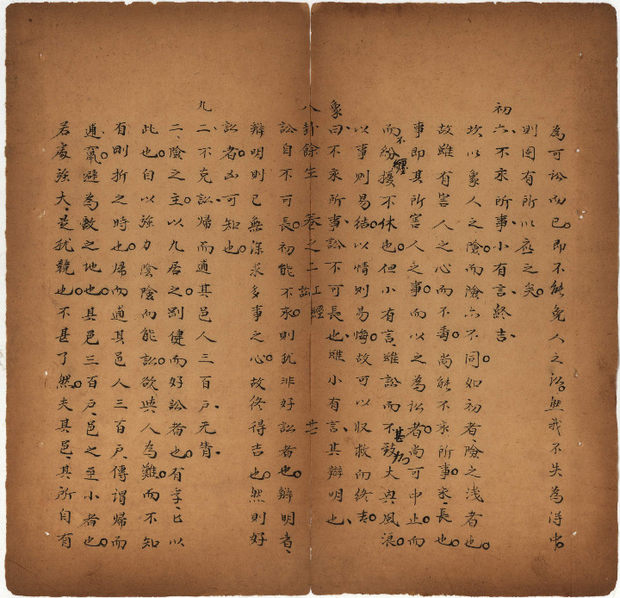 為可訟而已。即不能免人之訟。然我不失為得也。
則固有所以應之矣。
初六、不永所事、小有言、終吉、
坎以象人之陰。而陰亦不同。如初者、陰之淺者也。
故雖有害人之心而不毒。尚能不永所事。永、長也。
事即其所害人之事。而以之為訟者。尚可中止。而
而不紛擾不休也。但小有言、雖訟而不致甚大與風浪。
以事則易結。以情則易悔。故可以收救而終吉。
象曰、不永所事、訟不可長也、雖小有言、其辯明也、
八卦餘生 卷之二 訟 上經 廿
訟自不可長。初能不永。則就非好訟者也。辯明者、
辯明則已。無深求多事之心。故終得吉也。然則好
訟者。凶可知也。
九二、不克訟、歸而逋其邑人三百戶、无眚、
二、陰之主。以九居之。剛健而好訟者也。有孚、已以
此也。自以強力陰陰而能訟。欲與人為難。而不知
有則折之時也。歸而逋其邑人三百戶、傳謂歸而
逋竄。避為敵之地也。其邑三百戶、邑之至小者也。
若處強大、是猶競也。不甚了然。夫其邑、其所自有